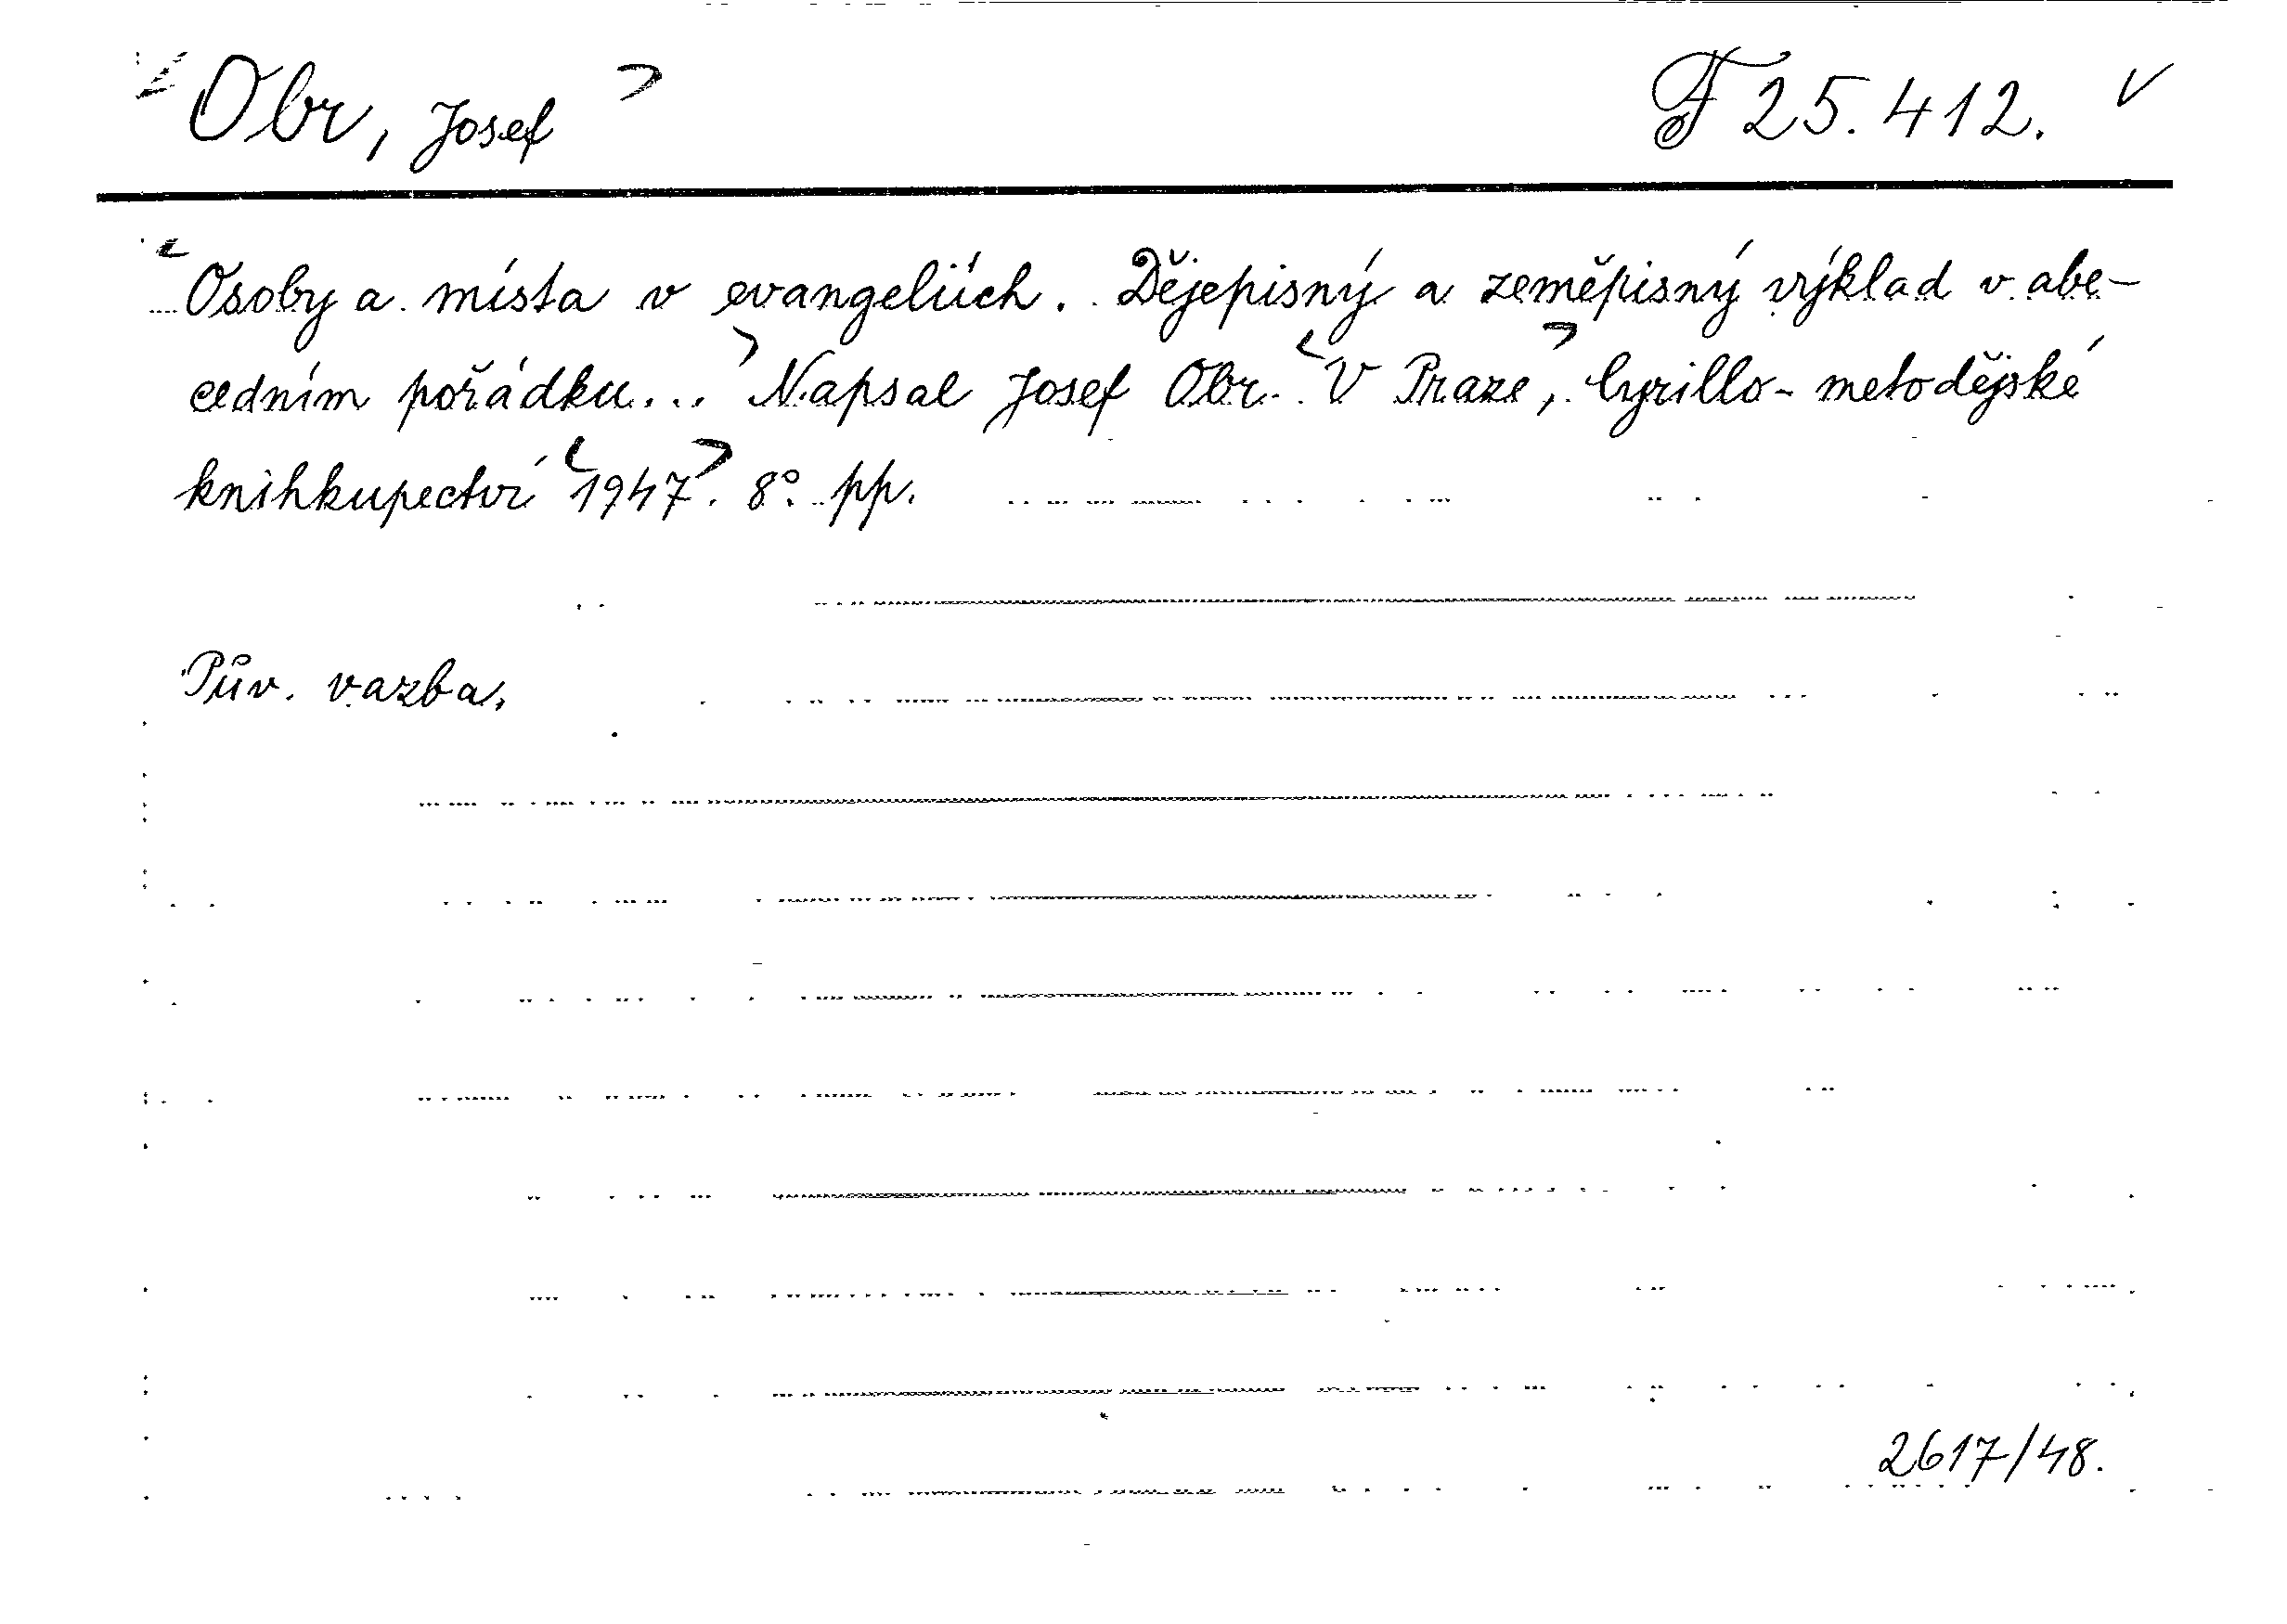 Obr, Josef
F 25.412. ✓
Osoby a místa v evangeliích. Dějepisný a zeměpisný výklad v abe-
cedním pořádku... Napsal Josef Obr. V Praze, Cyrillo-metodějské
knihkupectví 1947. 8° pp.
Pův. vazba.
2617/48.